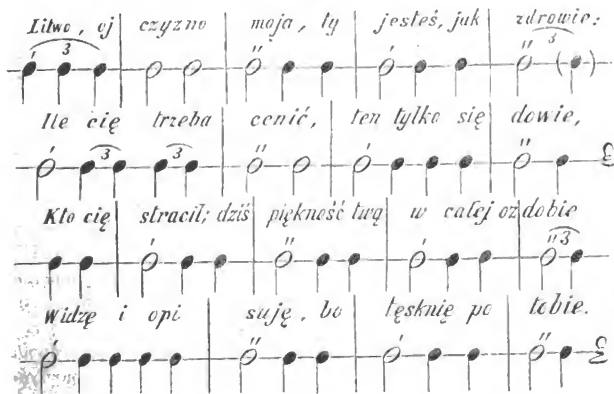 Litwo, oj czyzno moja, ty jesteś, jak zdrowie:
3 3
Ile cię trzeba cenić, ten tylko się dowie,
3 3
Kto cię stracił; dziś piękność twą w całej oz dobie
3
Widzę i opi suję, bo tęsknię po tobie.